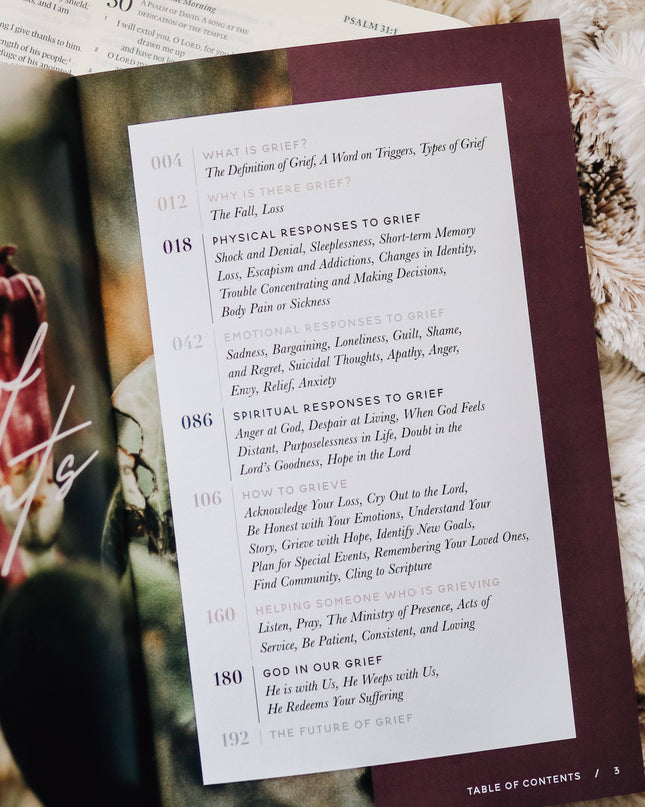 30
the Morning
A PSALM OF DAVID. A SONG AT THE
DEDICATION OF THE TEMPLE.
I will extol you, O LORD, for you
drawn me up
and have not
O LORD
PSALM 31:1
and I am
I give thanks to him.
ength of his people;
efuge of his anointed
004 WHAT IS GRIEF?
The Definition of Grief, A Word on Triggers, Types of Grief
012 WHY IS THERE GRIEF?
The Fall, Loss
018 PHYSICAL RESPONSES TO GRIEF
Shock and Denial, Sleeplessness, Short-term Memory
Loss, Escapism and Addictions, Changes in Identity,
Trouble Concentrating and Making Decisions,
Body Pain or Sickness
042 EMOTIONAL RESPONSES TO GRIEF
Sadness, Bargaining, Loneliness, Guilt, Shame,
and Regret, Suicidal Thoughts, Apathy, Anger,
Envy, Relief, Anxiety
086 SPIRITUAL RESPONSES TO GRIEF
Anger at God, Despair at Living, When God Feels
Distant, Purposelessness in Life, Doubt in the
Lord's Goodness, Hope in the Lord
106 HOW TO GRIEVE
Acknowledge Your Loss, Cry Out to the Lord,
Be Honest with Your Emotions, Understand Your
Story, Grieve with Hope, Identify New Goals,
Plan for Special Events, Remembering Your Loved Ones,
Find Community, Cling to Scripture
160 HELPING SOMEONE WHO IS GRIEVING
Listen, Pray, The Ministry of Presence, Acts of
Service, Be Patient, Consistent, and Loving
180 GOD IN OUR GRIEF
He is with Us, He Weeps with Us,
He Redeems Your Suffering
192 THE FUTURE OF GRIEF
TABLE OF CONTENTS / 3